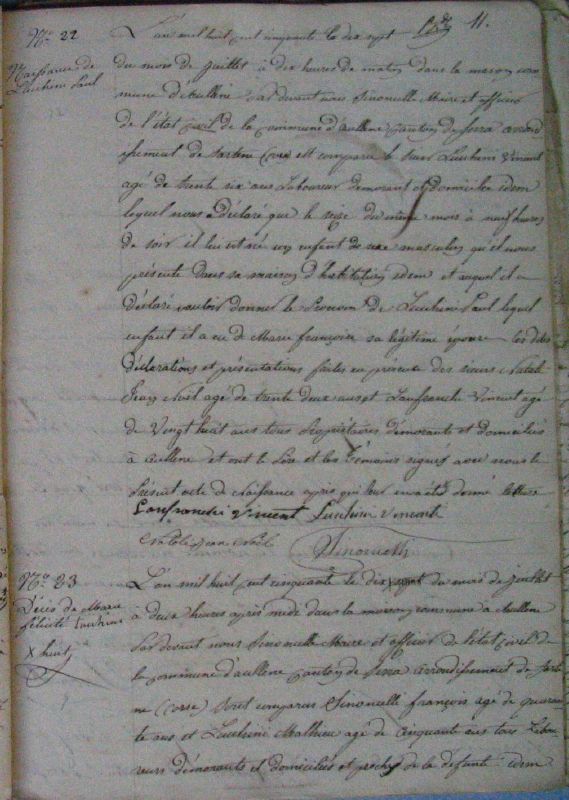 11.
N° 22
Naissance de
Lucchini Paul
L'an mil huit cent cinquante le dix sept
du mois de Juillet à dix heures de matin dans la maison com
mune d'Aullène par devant nous Sinonelle Maire et officier
de l'état civil de la commune d'aullene Canton de Serra arrond
issement de Sartene Corse est comparu le Sieur Lucchini Vincent
agé de trente six ans Laboureur demorant et Domicilié idem
lequel nous a Déclaré que le seize du même mois à neuf heures
de soir il lui est né un enfant de sexe masculin qu'il nous
présente dans sa maison d'habitation idem et auquel il a
Déclaré vouloir donner le Prenom de Lucchini Paul lequel
enfant il a eu de Marie françoise sa légitime épouse les dites
Déclarations et présentations faites en présence des sieurs Natali
Jean Noël agé de trente deux ans et Lanfranchi Vincent agé
de Vingt huit ans tous Propriétaires demorants et domiciliés
à Aullene et ont le Père et les témoins signés avec nous le
Présent acte de Naissance après qui leur en a été donné lecture
Lanfranchi Vincent Lucchini Vincenti
Natali Jean Noël
Sinonelli
N° 23
Décès de Marie
félicité Lucchini
X huit
L'an mil huit cent cinquante le dix X sept du mois de Juillet
à deux heures après midi dans la maison commune à Aullene
Par devant nous Sinonelle Maire et officier de l'état civil de
la commune d'aullene canton de Serra arrondissement de Sarte
ne (Corse) sont comparus Sinonelle françois agé de quaran
te ans et Lucchini Mathieu agé de Cinquante ans tous Labou
reurs démorants et domiciliés et proches de la défunte idem